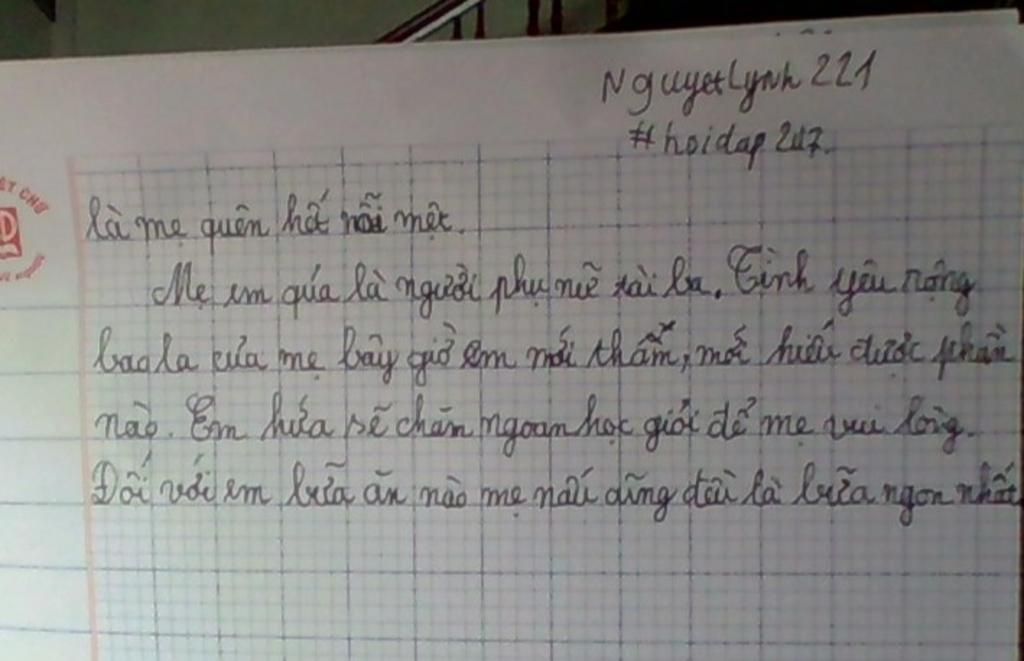 Nguyetlynh 221
#hoidap 247.
là mẹ quên hết nỗi mệt.
Mẹ em quá là người phụ nữ tài ba. Tình yêu rộng
bao la của mẹ bây giờ em mới thấm, mới hiểu được phần
nào. Em hứa sẽ chăm ngoan học giỏi để mẹ vui lòng.
Đối với em bữa ăn nào mẹ nấu cũng đều là bữa ngon nhất